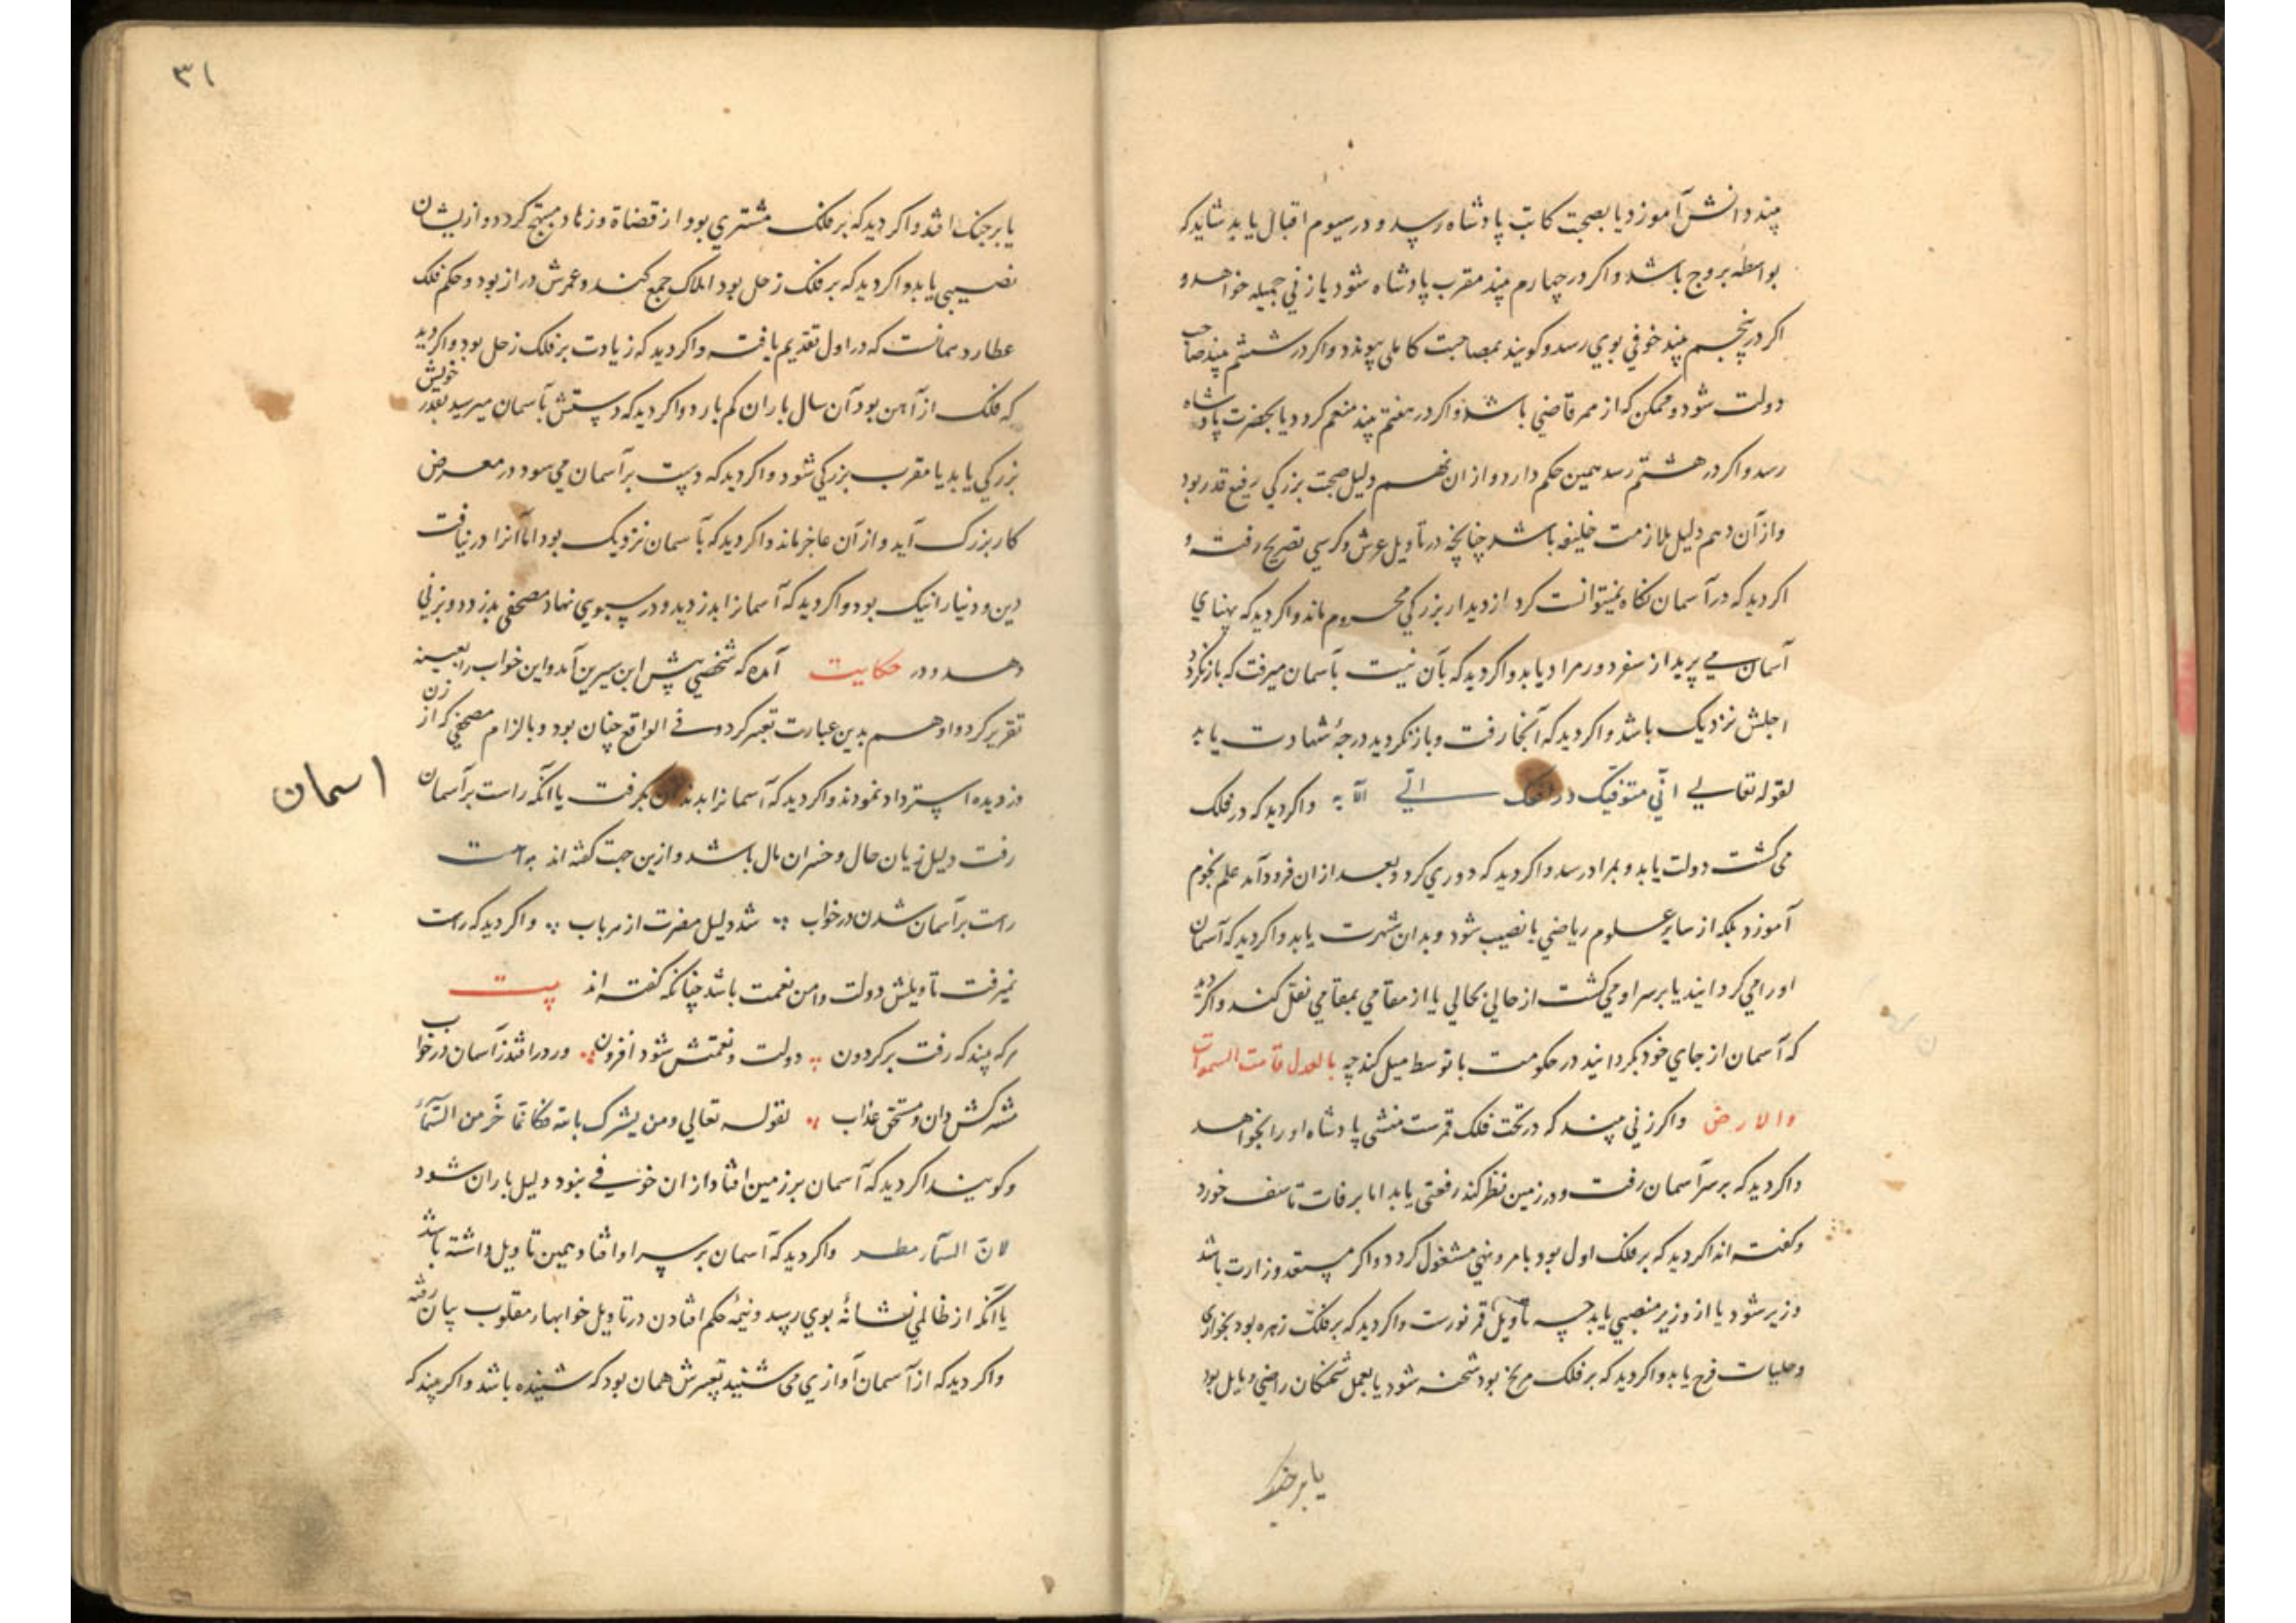 بیند دانش آموزد یا بصحبت کاتب پادشاه رسد و در سیوم اقبال یابد شاید که
بواسطه بروج باشد و اکر در چهارم بیند مقرب پادشاه شود یا زنی جمیله خواهد و
اکر در پنجم بیند خوفی بوی رسد و کویند بمصاحبت کاملی پیوندد و اکر در ششم بیند صاحب
دولت شود و ممکن که از ممر قاضی باشد و اکر در هفتم بیند منعم کردد یا بحضرت پادشاه
رسد و اکر در هشتم رسد همین حکم دارد و از ان نهم دلیل صحبت بزرکی رفیع قدر بود
و از آن دهم دلیل ملازمت خلیفه باشد چنانچه در تاویل عرش و کرسی تصریح رفت و
اکر دید که در آسمان نکاه نمیتوانست کرد از دیدار بزرکی محروم ماند و اکر دید که پهنای
آسمان می پرید از سفر دور مراد یابد و اکر دید که بآن نیت بآسمان میرفت که باز نکردد
اجلش نزدیک باشد و اکر دید که آنجا رفت و باز نکردید درجهٔ شهادت یابد
لقوله تعالی انّی متوفیک و رافعک الیّ الآیه و اکر دید که در فلک
می کشت دولت یابد و بمراد رسد و اکر دید که دوری کرد و بعد از ان فرود آمد علم نجوم
آموزد بلکه از سایر علوم ریاضی با نصیب شود و بدان شهرت یابد و اکر دید که آسمان
او را می کردانید یا بر سر او می کشت از حالی بحالی یا از مقامی بمقامی نقل کند و اکر دید
که آسمان از جای خود بکردانید در حکومت با توسط میل کند چه بالعدل قامت السموات
والارض و اکر زنی بیند که در تحت فلک قمرست منشی پادشاه او را بخواهد
و اکر دید که بر سر آسمان رفت و در زمین نظر کند رفعتی یابد اما بر فات تاسف خورد
و کفته اند اکر دید که بر فلک اول بود بامر و نهی مشغول کردد و اکر مستعد وزارت باشد
وزیر شود یا از وزیر منصبی یابد چه تاویل قمر نورست و اکر دید که بر فلک زهره بود بجواری
و حلیات فرح یابد و اکر دید که بر فلک مریخ بود شحنه شود یا بعمل شحنکان راضی و مایل بود
یا بر جنک
۳۱
یا بر جنک افتد و اکر دید که بر فلک مشتری بود از قضاة و زهاد مبتهج کردد و از یشان
نصیبی یابد و اکر دید که بر فلک زحل بود املاک جمع کند و عمرش دراز بود و حکم فلک
عطارد همانست که در اول تقدیم یافت و اکر دید که زیادت بر فلک زحل بود و اکر دید
که فلک از آهن بود آن سال باران کم بارد و اکر دید که دستش بآسمان میرسید بقدر خویش
بزرکی یابد یا مقرب بزرکی شود و اکر دید که دست بر آسمان می سود در معرض
کار بزرک آید و از آن عاجز ماند و اکر دید که بآسمان نزدیک بود اما آنرا در نیافت
دین و دنیا را نیک بود و اکر دید که آسمانرا بدزدید و در سبوی نهاد مصحفی بدزدد و بزنی
دهد و در حکایت آمده که شخصی پیش ابن سیرین آمد و این خواب را بعینه
تقریر کرد و او هم بدین عبارت تعبیر کرد و فی الواقع چنان بود و بالزام مصحفی که از زن
دزدیده استرداد نمودند و اکر دید که آسمانرا بدندان بکرفت یا آنکه راست بر آسمان
اسمان
رفت دلیل زیان حال و خسران مال باشد و ازین جهت کفته اند
راست بر آسمان شدن در خواب شد دلیل مضرت از هر باب و اکر دید که راست
نمیرفت تاویلش دولت و امن نعمت باشد چنانکه کفته اند بیت
هر که بیند که رفت بر کردون دولت و نعمتش شود افزون ور در افتد ز آسمان در خواب
مشرکش دان و مستحق عذاب لقوله تعالی ومن یشرک بالله فکانما خرّ من السّماء
و کویند اکر دید که آسمان بر زمین افتاد از ان خوفی نبود دلیل باران شود
لانّ السّماء مطر و اکر دید که آسمان بر سر او افتاد همین تاویل داشته باشد
یا آنکه از ظالمی نشانهٔ بوی رسد و تتمهٔ حکم افتادن در تاویل خوابهاء مقلوب بیان رفته
و اکر دید که از آسمان آوازی می شنید تعبیرش همان بود که شنیده باشد و اکر بیند که